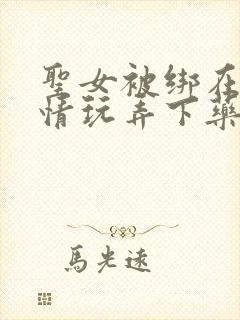 聖女被绑在
情玩弄下藥
馬光遠